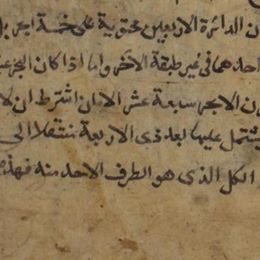 ن الدائرة الاربعين محتوية على خمسة ابحر
احدهما فى غير طبقة الآخر واما اذا كان البحر
ن الابحر سبعة عشر الا ان اشترط ان لا
يشتمل عليها بعد فى الاربعة منتقلا الى
الكل الذى هو الطرف الاحد منه فهذه